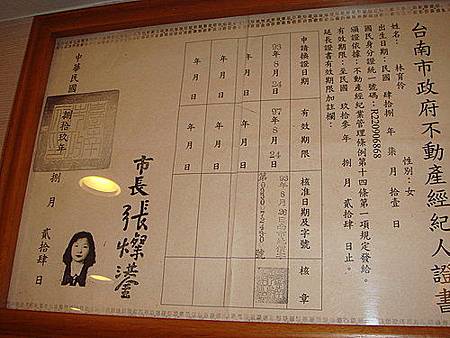 台南市政府不動產經紀人證書
姓名：林育伶 性別：女
出生日期：民國 肆拾捌年 柒月 拾壹日
國民身分證統一號碼：R220906868
頒證依據：不動產經紀業管理條例第十四條第一項規定發給。
有效期限：至民國 玖拾參年 捌月 貳拾肆日止。
延長證書有效期限加註欄：
申請換證日期 有效期限 核准日期及字號 核章
93年8月24日 97年8月24日 93年8月26日
年月日 年月日
年月日 年月日
市長 張燦鍙
中華民國 捌拾玖年 捌月 貳拾肆日